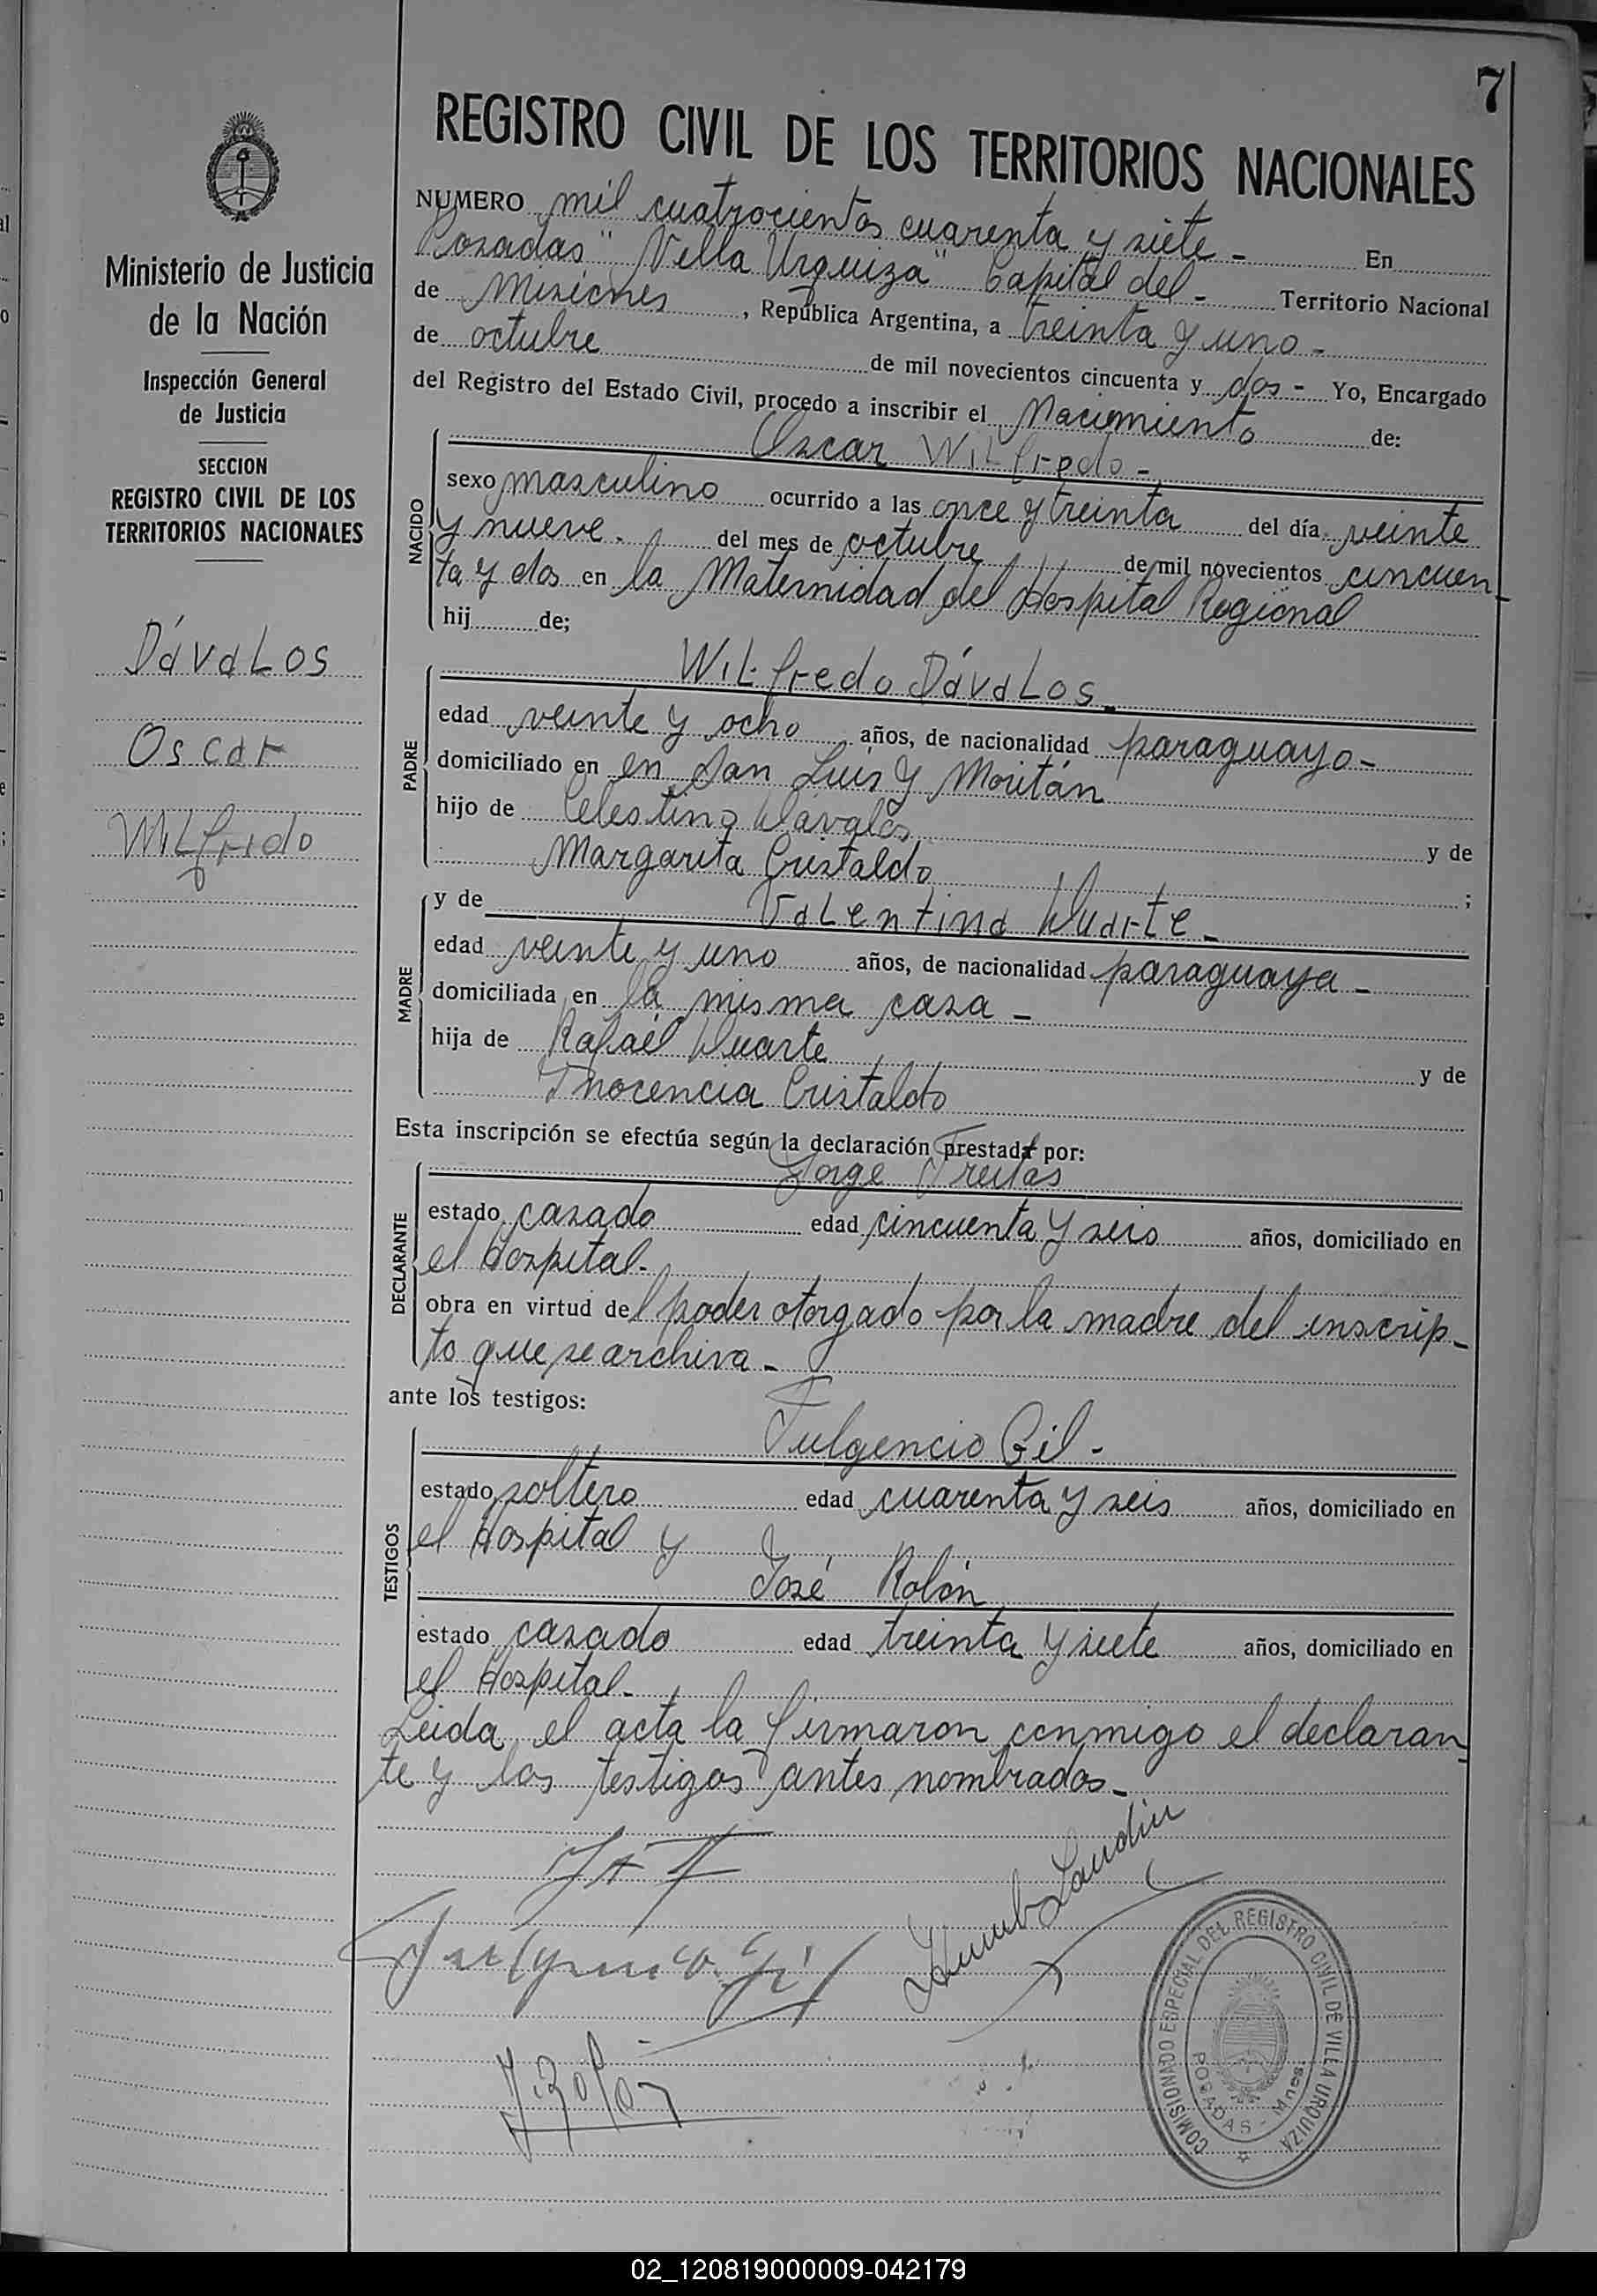 7
REGISTRO CIVIL DE LOS TERRITORIOS NACIONALES
Ministerio de Justicia
de la Nación
Inspección General
de Justicia
SECCION
REGISTRO CIVIL DE LOS
TERRITORIOS NACIONALES
DávaLos
Oscar
WiLfrido
NUMERO mil cuatrocientos cuarenta y siete - En
Posadas "Villa Urquiza" Capital del - Territorio Nacional
de Misiones, República Argentina, a treinta y uno -
de octubre de mil novecientos cincuenta y dos - Yo, Encargado
del Registro del Estado Civil, procedo a inscribir el Nacimiento de:
NACIDO
Oscar WiLfredo -
sexo masculino ocurrido a las once y treinta del día veinte
y nueve. del mes de octubre de mil novecientos cincuen
ta y dos en la Maternidad del Hospital Regional
hij de;
PADRE
WiLfredo DávaLos -
edad veinte y ocho años, de nacionalidad paraguayo -
domiciliado en en San Luis y Moritán
hijo de Celestino Dávalos y de
Margarita Cristaldo ;
MADRE
y de VaLentina Duarte -
edad veinte y uno años, de nacionalidad paraguaya -
domiciliada en la misma casa -
hija de Rafael Duarte y de
Inocencia Cristaldo
Esta inscripción se efectúa según la declaración prestada por:
DECLARANTE
Jorge Freitas
estado casado edad cincuenta y seis años, domiciliado en
el Hospital -
obra en virtud del poder otorgado por la madre del inscrip-
to que se archiva -
ante los testigos:
TESTIGOS
Fulgencio Gil -
estado soltero edad cuarenta y seis años, domiciliado en
el Hospital y
José Rolón
estado casado edad treinta y siete años, domiciliado en
el Hospital -
Leida el acta la firmaron conmigo el declaran
te y los testigos antes nombrados -
Fulgencio Gil
J. Rolon
COMISIONADO ESPECIAL DEL REGISTRO CIVIL DE VILLA URQUIZA
POSADAS - Mnes.
02_120819000009-042179